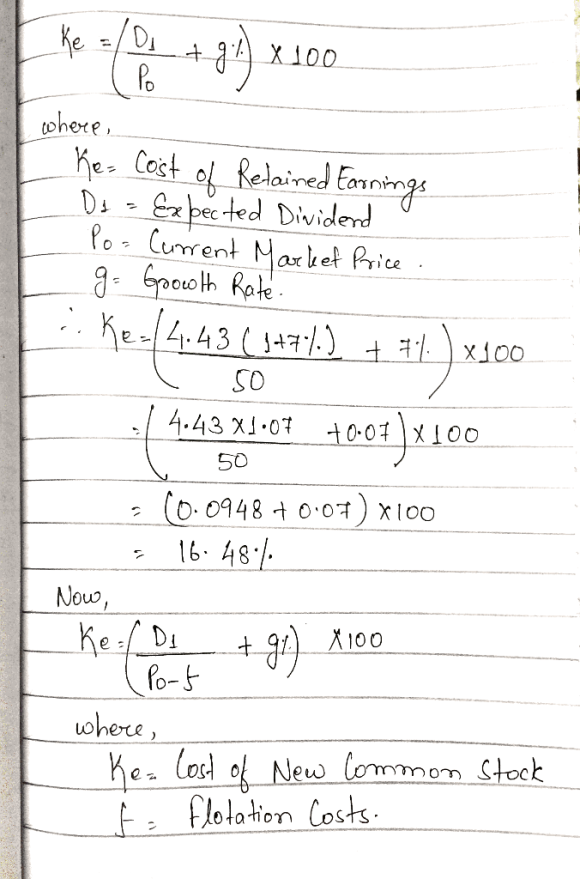 Ke = (D1/P0 + g%) × 100
where,
Ke = Cost of Retained Earnings
D1 = Expected Dividend
P0 = Current Market Price.
g = Growth Rate.
∴ Ke = (4.43 (1+7%)/50 + 7%) × 100
= (4.43 × 1.07/50 + 0.07) × 100
= (0.0948 + 0.07) × 100
= 16.48%
Now,
Ke = (D1/P0-f + g%) × 100
where,
Ke = Cost of New Common Stock
f = Flotation Costs.